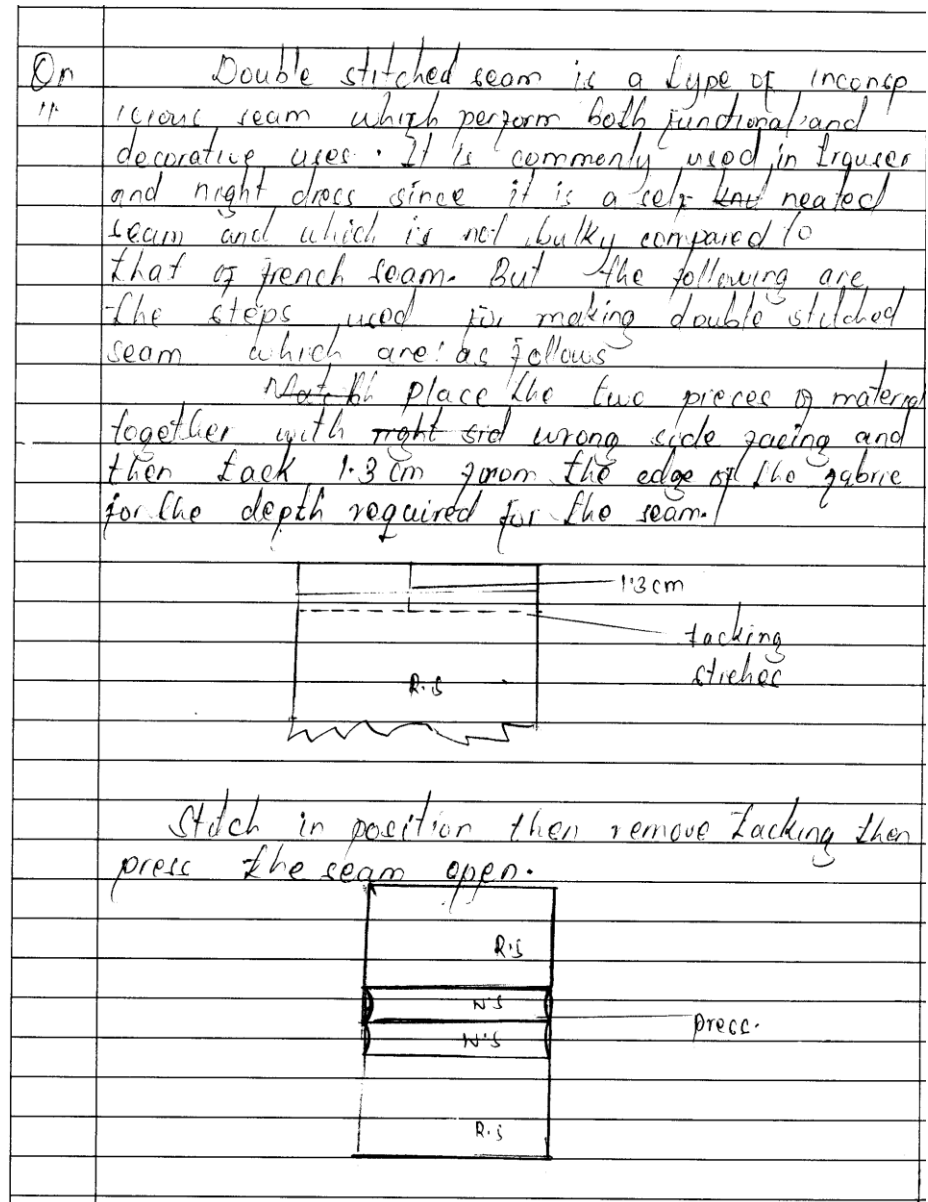 Qn Double stitched seam is a type of inconsp
11 icious seam which perform both functional and
decorative uses. It is commonly used in trouser
and night dress since it is a self neated
seam and which is not bulky compared to
that of french seam. But the following are
the steps used for making double stitched
seam which are: as follows
place the two pieces of material
together with wrong side facing and
then tack 1.3 cm from the edge of the fabric
for the depth required for the seam.
1.3 cm
tacking
stiches
R.S
Stitch in position then remove tacking then
press the seam open.
R.S
W.S
press.
W.S
R.S